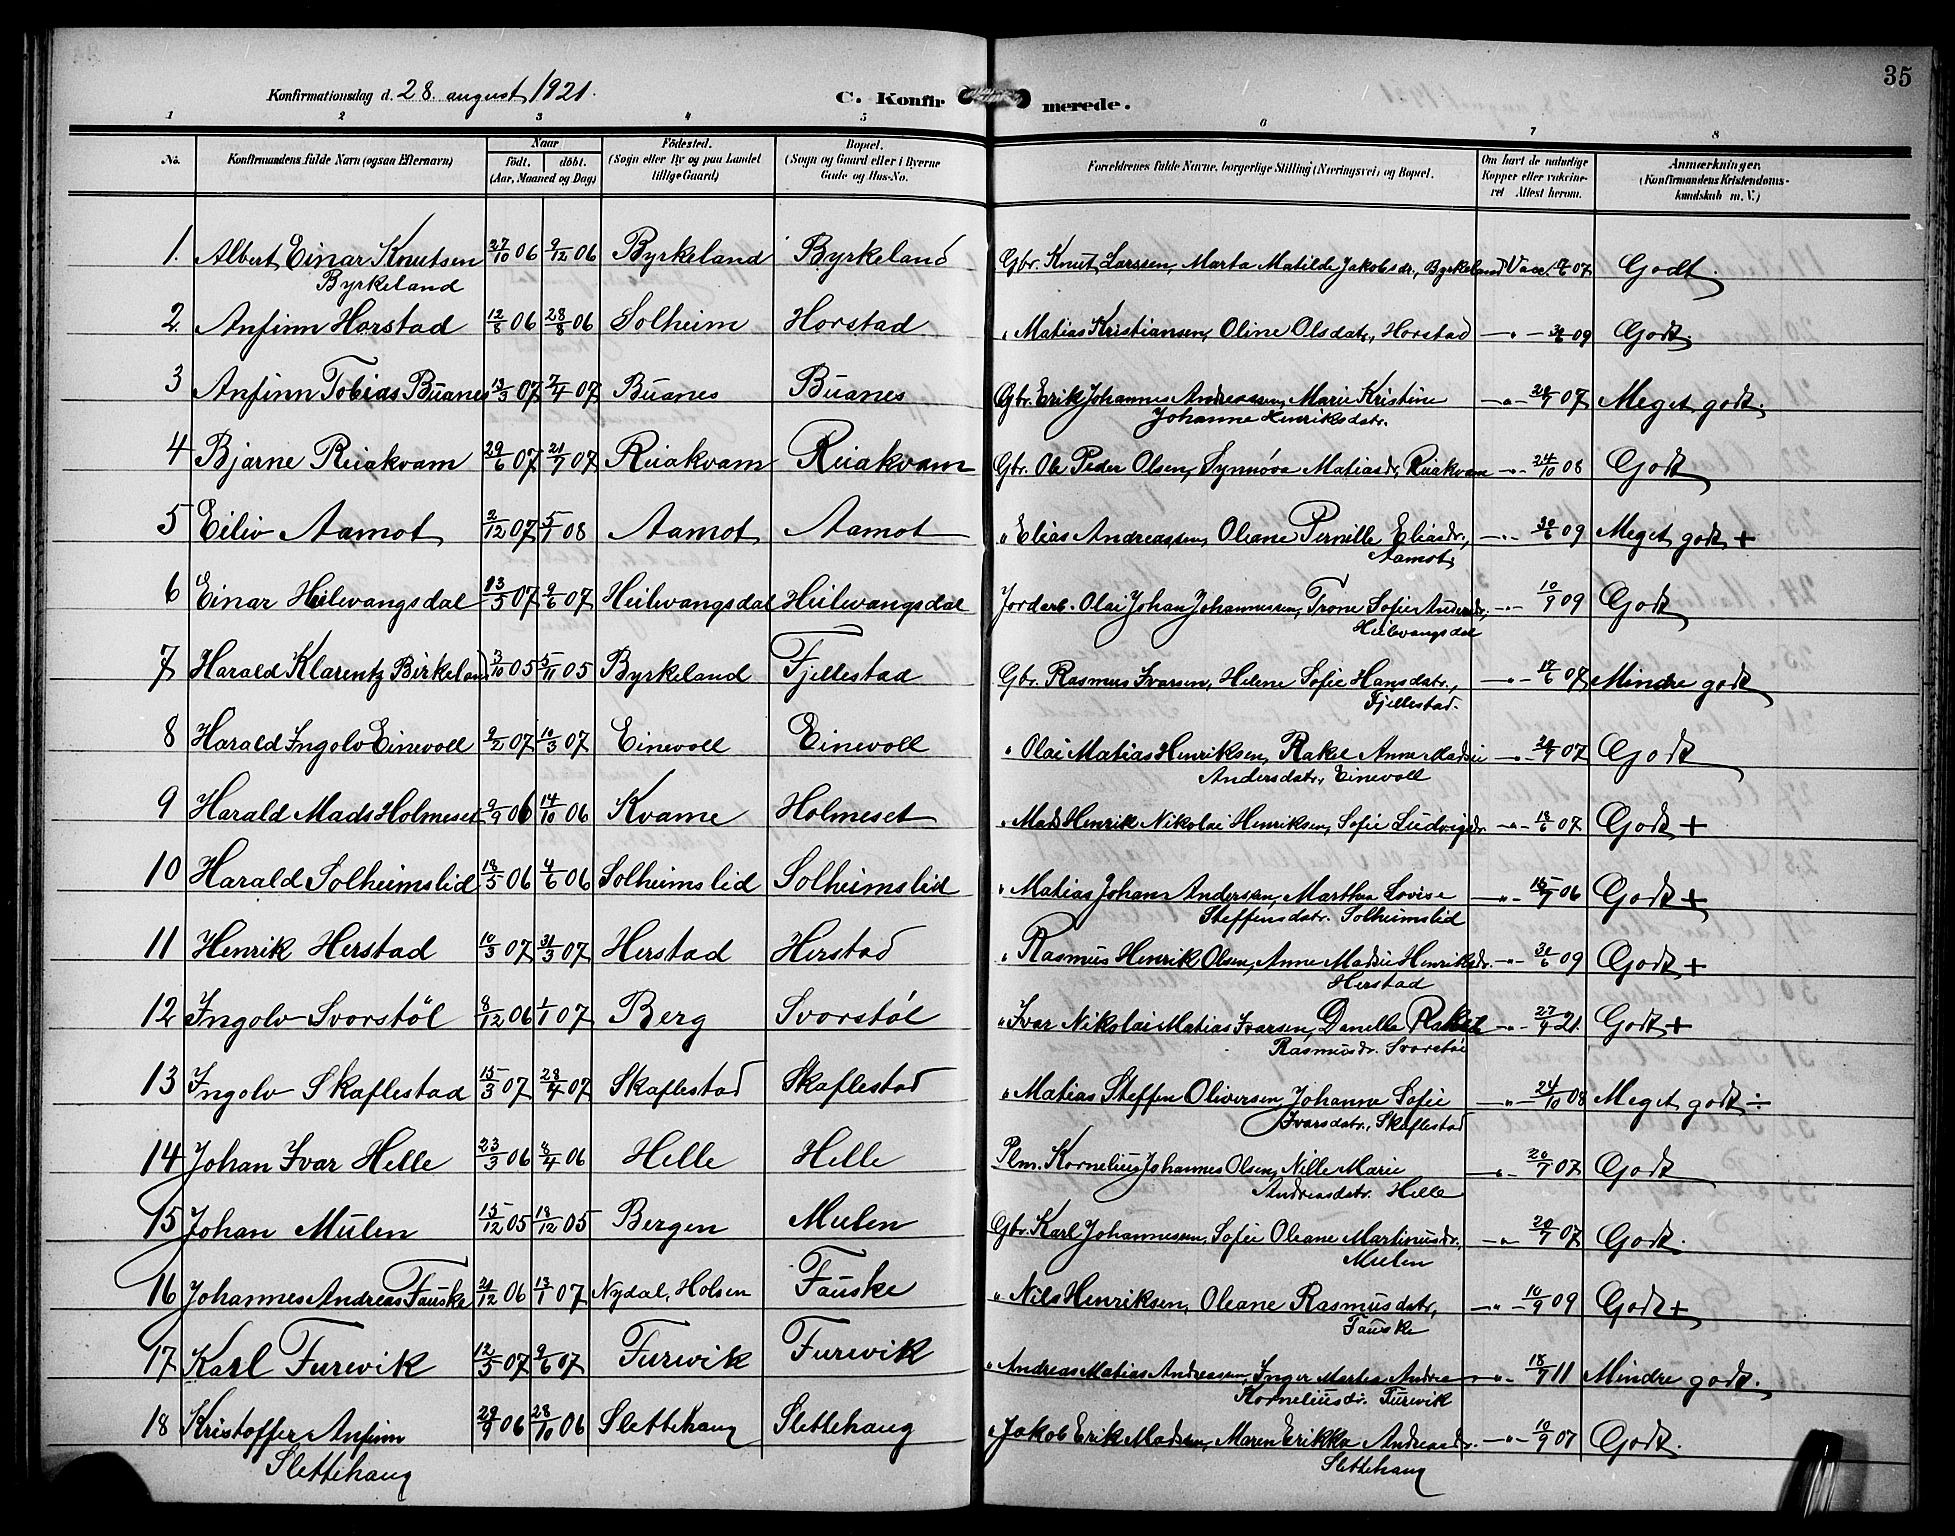 Konfirmationsdag d. 28. august 1921.
C. Konfirmerede.
35
1 2 3 4 5 6 7 8
No. Konfirmandens fulde Navn (ogsaa Efternavn) Naar født. døbt. (Aar, Maaned og Dag) Fødested. (Sogn eller By og paa Landet tillige Gaard) Bopæl. (Sogn og Gaard eller i Byerne Gade og Hus-No. Forældrenes fulde Navne, borgerlige Stilling (Næringsvei) og Bopæl. Om havt de naturlige Kopper eller vakcineret Attest herom. Anmærkninger. (Konfirmandens Kristendomskundskab m. V.)
1. Albert Einar Knutsen 27/10 06 9/12 06 Byrkeland Byrkeland Gbr. Knut Larssen, Marta Matilde Jakobsdr., Byrkeland Vacc. 07 Godt.
Byrkeland
2 Anfinn Horstad 12/8 06 28/8 06 Solheim Horstad " Matias Kristiansen, Oline Olsdatr., Horstad — " — 30/6 09 Godt.
3 Anfinn Tobias Buanes 13/3 07 7/4 07 Buanes Buanes Gbr. Erik Johannes Andreassen, Marie Kristine — " — 07 Meget godt.
Johanne Henriksdatr.
4 Bjarne Reiakvam 29/6 07 21/7 07 Reiakvam Reiakvam Gbr. Ole Peder Olsen, Synnøva Matiasdr, Reiakvam — " — 24/10 08 Godt
5 Eiliv Aamot 2/12 07 5/1 08 Aamot Aamot " Elias Andreassen, Oleane Pernille Eliasdr., — " — 30/6 09 Meget godt +
Aamot
6 Einar Heilevangsdal 13/5 07 9/6 07 Heilevangsdal Heilevangsdal Jordarb. Olai Johan Johannessen, Trone Sofie — " — 10/9 09 Godt
Heilevangsdal
7 Harald Klarentz Birkeland 3/10 05 5/11 05 Byrkeland Fjellestad Gbr. Rasmus Ivarsen, Helene Sofie Hansdatr., — " — 17/6 07 Mindre godt
Fjellestad.
8 Harald Ingolv Einevoll 9/2 07 10/3 07 Einevoll Einevoll " Olai Matias Henriksen, Rakel Anne Madsie — " — 07 Godt
Andersdatr., Einevoll
9 Harald Mads Holmeset 9/9 06 14/10 06 Kvame Holmeset " Mads Henrik Nikolai Henriksen, Sofie Ludvigsdr. — " — 18/6 07 Godt +
10 Harald Solheimslid 18/5 06 4/6 06 Solheimslid Solheimslid " Matias Johan Andersen, Marthea Lovise — " — 06 Godt +
Steffensdatr. Solheimslid
11 Henrik Herstad 10/3 07 31/3 07 Herstad Herstad " Rasmus Henrik Olsen, Anne Madsie Henriksdr. — " — 30/6 09 Godt +
Herstad
12 Ingolv Svorstøl 8/12 06 1/1 07 Berg Svorstøl " Ivar Nikolai Matias Ivarsen, Danelle Rakel — " — 27/4 21. Godt +
Rasmusdr. Svorstøl
13 Ingolv Skaflestad 15/3 07 28/4 07 Skaflestad Skaflestad " Matias Steffen Oliversen, Johanne Sofie — " — 24/10 08 Meget godt ÷
Ivarsdatr., Skaflestad
14 Johan Ivar Helle 23/3 06 8/4 06 Helle Helle Plm. Kornelius Johannes Olsen, Nille Marie — " — 20/7 07 Godt
Andreasdatr. Helle
15 Johan Mulen 15/12 05 18/12 05 Bergen Mulen Gbr. Karl Johannessen, Sofie Oleane Martinusdr., — " — 20/7 07 Godt.
Mulen
16 Johannes Andreas Fauske 21/12 06 13/1 07 Nydal, Holsen Fauske " Nils Henriksen, Oleane Rasmusdatr, — " — 10/9 09 Godt +
Fauske
17 Karl Furevik 12/5 07 9/6 07 Furevik Furevik " Andreas Matias Andreassen, Inger Martea Andrea — " — 18/7 11 Mindre godt.
Korneliusdr. Furevik
18 Kristoffer Anfinn 29/9 06 28/10 06 Slettehaug Slettehaug " Jakob Erik Madsen, Maren Erikka Andreasdr. — " — 10/9 07 Godt.
Slettehaug Slettehaug